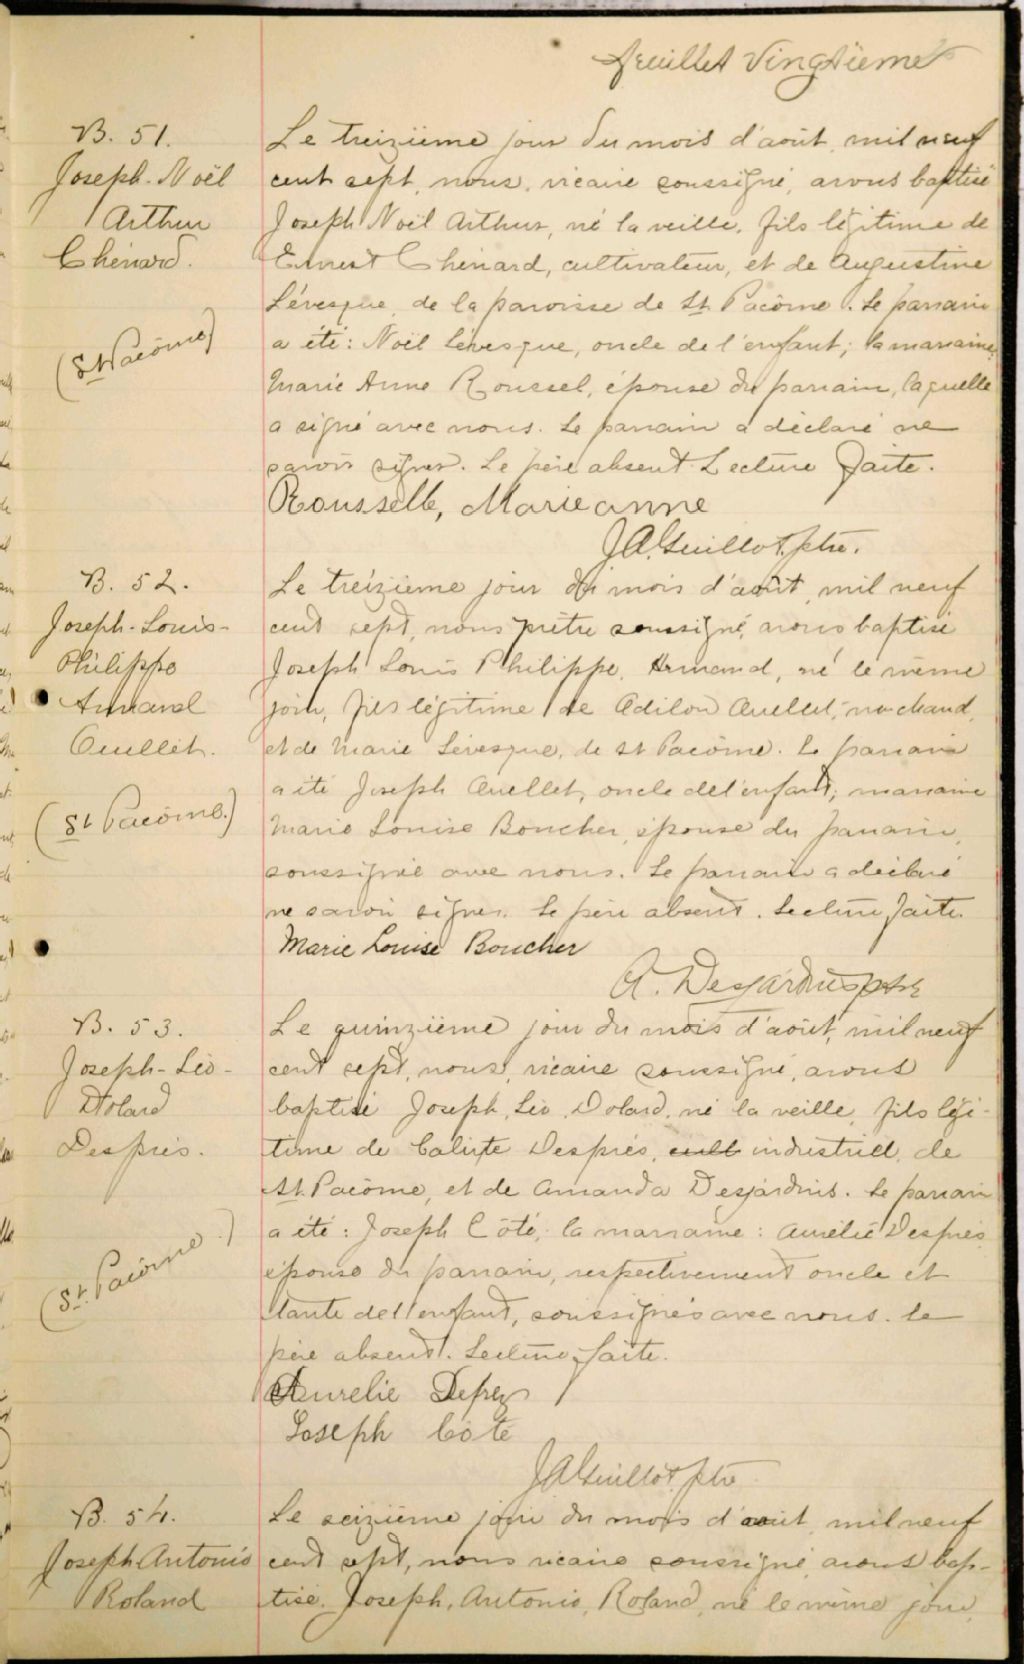 feuillet vingtième
B. 51.
Joseph-Noël
Arthur
Chénard.
(St Pacôme)
Le treizième jour du mois d'août, mil neuf
cent sept, nous, vicaire soussigné, avons baptisé
Joseph Noël Arthur, né la veille, fils légitime de
Ernest Chénard, cultivateur, et de Augustine
Lévesque, de la paroisse de St. Pacôme. Le parrain
a été: Noël Lévesque, oncle de l'enfant; la marraine,
Marie Anne Roussel, épouse du parrain, laquelle
a signé avec nous. Le parrain a déclaré ne
savoir signer. Le père absent. Lecture faite.
Rousselle, Marie anne
J.A. Guillot, ptre.
B. 52.
Joseph-Louis-
Philippe
Armand
Ouellet.
(St Pacôme.)
Le treizième jour du mois d'août, mil neuf
cent sept, nous prêtre soussigné, avons baptisé
Joseph Louis Philippe, Armand, né le même
jour, fils légitime de Adilon Ouellet, marchand,
et de Marie Lévesque, de St Pacôme. Le parrain
a été Joseph Ouellet, oncle de l'enfant; marraine
Marie Louise Boucher, épouse du parrain,
soussignée avec nous. Le parrain a déclaré
ne savoir signer. Le père absent. Lecture faite.
Marie Louise Boucher
A. Desjardins ptre
B. 53.
Joseph-Léo-
Dolard
Després.
(St. Pacôme.)
Le quinzième jour du mois d'août, mil neuf
cent sept, nous, vicaire soussigné, avons
baptisé Joseph, Léo, Dolard, né la veille, fils légi-
time de Calixte Després, cult industriel, de
St. Pacôme, et de Amanda Desjardins. Le parrain
a été: Joseph Côté; la marraine: Aurélie Després
épouse du parrain, respectivement oncle et
tante de l'enfant, soussignés avec nous. Le
père absent. Lecture faite.
Aurelie Deprez
Joseph Côté
J A Guillot, ptre
B. 54.
Joseph Antonio
Roland
Le seizième jour du mois d'août, mil neuf
cent sept, nous vicaire soussigné, avons bap-
tisé, Joseph, Antonio, Roland, né le même jour,